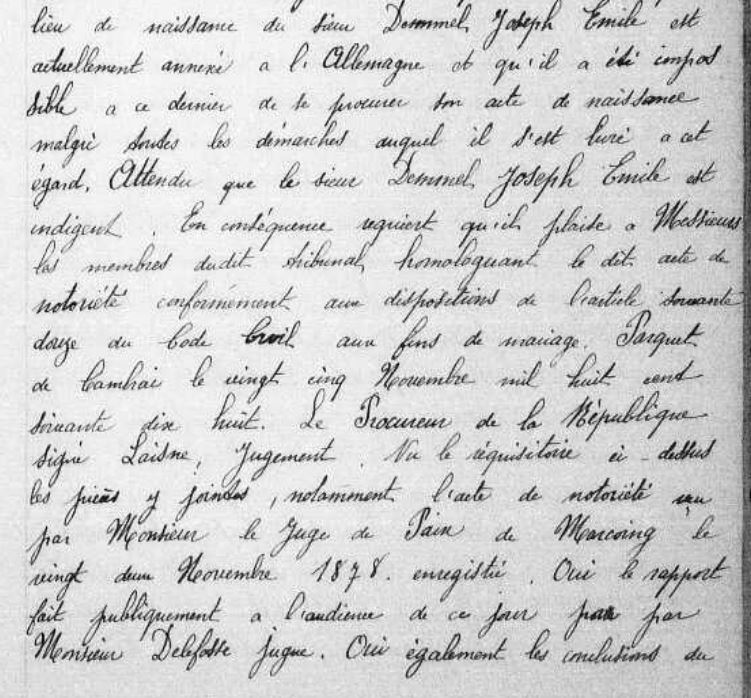 lieu de naissance du sieur Demmel, Joseph Emile est
actuellement annexé a l'Allemagne et qu'il a été impos
sible a ce dernier de se procurer son acte de naissance
malgré toutes les démarches auquel il s'est livré a cet
égard. Attendu que le sieur Demmel, Joseph Emile est
indigent. En conséquence requiert qu'il plaise a Messieurs
les membres dudit tribunal, homologuant le dit acte de
notoriété conformément aux dispositions de l'article soixante
douze du Code Civil aux fins de mariage. Parquet
de Cambrai le vingt cinq Novembre mil huit cent
soixante dix huit. Le Procureur de la République
signé Laisne, Jugement. Vu le réquisitoire ci-dessus
les pièces y jointes, notamment l'acte de notoriété
par Monsieur le Juge de Paix de Marcoing le
vingt deux Novembre 1878. enregistré. Oui le rapport
fait publiquement a l'audience de ce jour par
Monsieur Delefosse jugue. Oui également les conclusions du